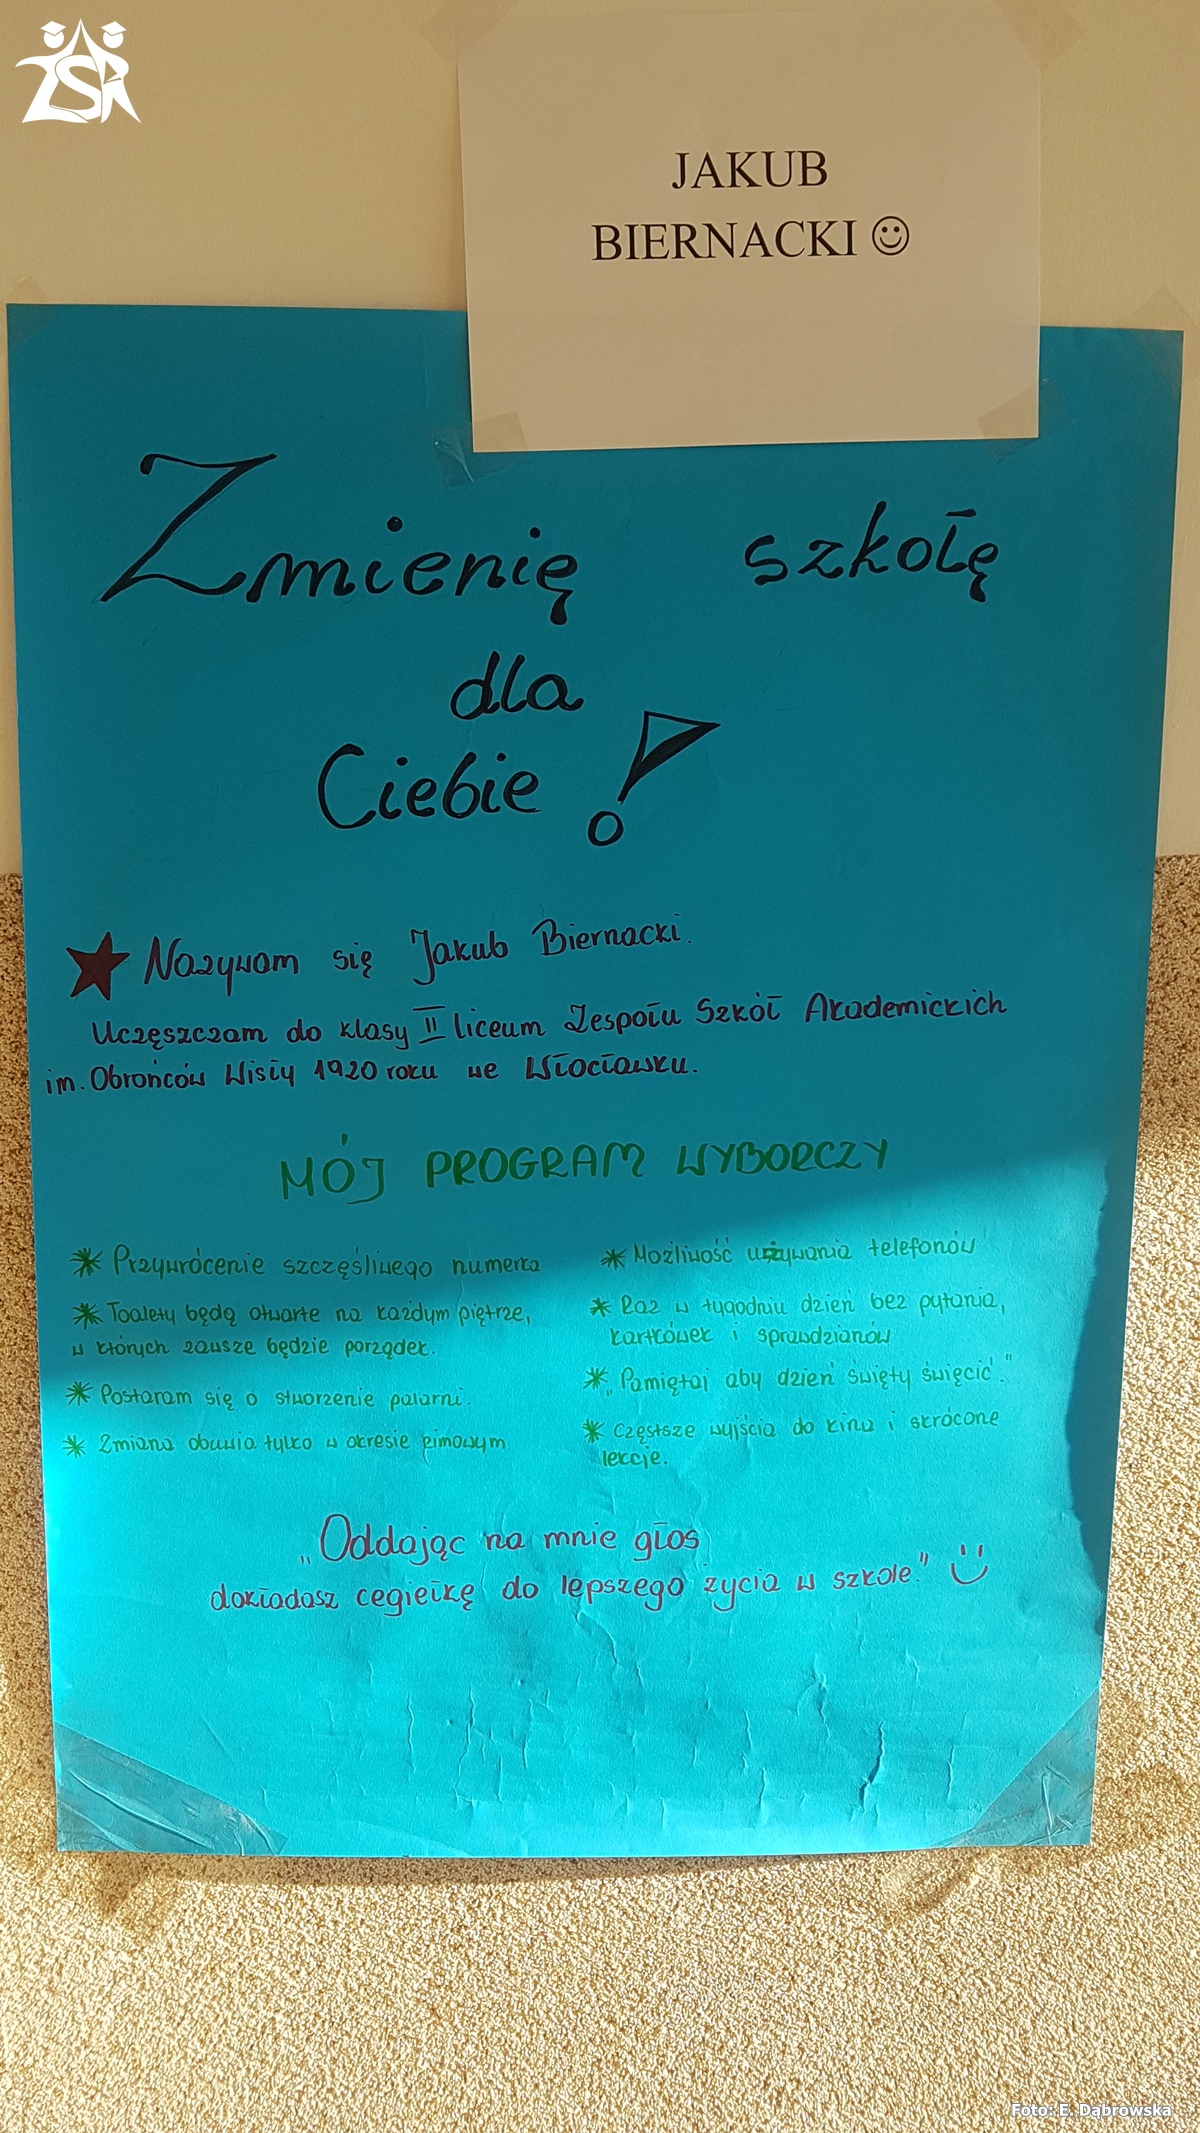 ZSA
JAKUB
BIERNACKI ☺
Zmienię szkołę
dla
Ciebie !
Nazywam się Jakub Biernacki.
Uczęszczam do klasy II liceum Zespołu Szkół Akademickich
im. Obrońców Wisły 1920 roku we Włocławku.
MÓJ PROGRAM WYBORCZY
Przywrócenie szczęśliwego numerka
Toalety będą otwarte na każdym piętrze,
w których zawsze będzie porządek.
Postaram się o stworzenie palarni.
Zmiana obuwia tylko w okresie zimowym
Możliwość używania telefonów
Raz w tygodniu dzień bez pytania,
kartkówek i sprawdzianów
„Pamiętaj aby dzień święty święcić."
Częstsze wyjścia do kina i skrócone
lekcje.
„Oddając na mnie głos
dokładasz cegiełkę do lepszego życia w szkole."
Foto: E. Dąbrowska